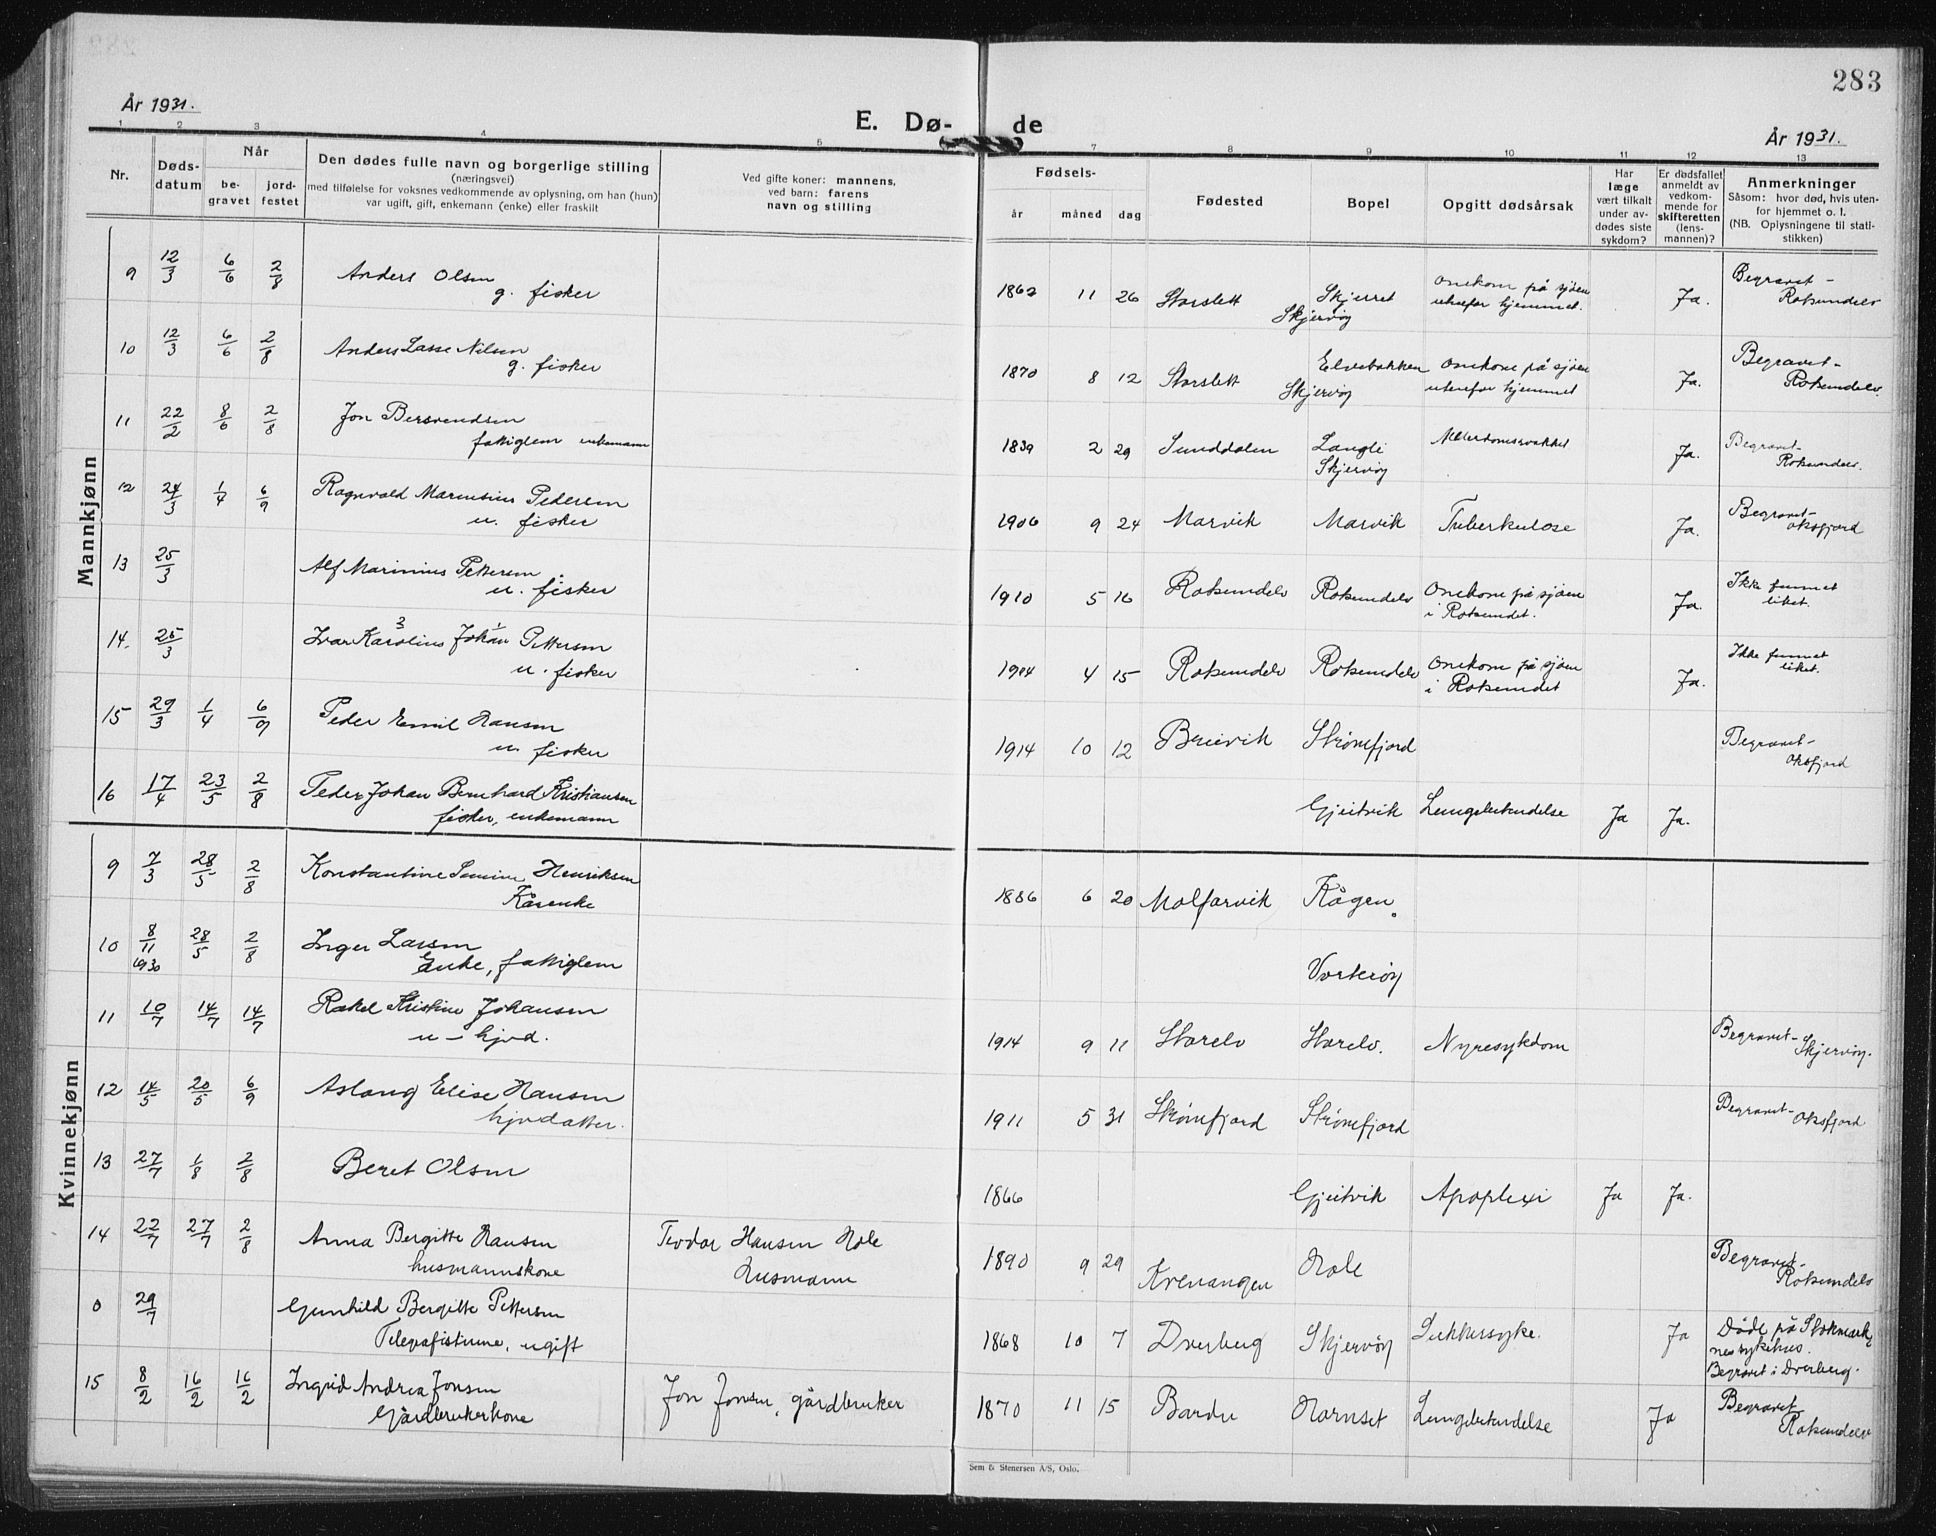 283
År 1931.
E. Dø- de
År 1931.
1 2 3 4 5 7 8 9 10 11 12 13
Nr. Døds-datum Når be-gravet jord-festet
Den dødes fulle navn og borgerlige stilling
(næringsvei)
med tilføielse for voksnes vedkommende av oplysning, om han (hun)
var ugift, gift, enkemann (enke) eller fraskilt
Ved gifte koner: mannens,
ved barn: farens
navn og stilling
Fødsels- år måned dag
Fødested
Bopel
Opgitt dødsårsak
Har læge vært tilkalt under av-dødes siste sykdom?
Er dødsfallet anmeldt av vedkom-mende for skifteretten (lens-mannen)?
Anmerkninger
Såsom: hvor død, hvis uten-
for hjemmet o. l.
(NB. Oplysningene til stati-
stikken)
Mannkjønn
9 12/3 6/6 2/8 Anders Olsen 1862 11 26 Storslett Skjerret Omkom på sjøen Ja. Begravet-
g. fisker Skjervøy utenfor hjemmet. Rotsundelv
10 12/3 6/6 2/8 Anders Lasse Nilsen 1870 8 12 Storslett Elvebakken Omkom på sjøen Ja. Begravet-
g. fisker Skjervøy utenfor hjemmet Rotsundelv.
11 22/2 8/6 2/8 Jon Bersvendsen 1839 2 29 Sunddalen Langli Alderdomssvakket Ja. Begravet-
fattiglem enkemann Skjervøy Rotsundelv.
12 24/3 1/4 6/9 Ragnvald Marensius Pedersen 1906 9 24 Marvik Marvik Tuberkulose Ja. Begravet-
u. fisker Oksfjord
13 25/3 Alf Marinius Pettersen 1910 5 16 Rotsundelv Rotsundelv Omkom på sjøen Ja. Ikke funnet
u. fisker i Rotsundet. liket.
14. 25/3 Ivar Karolius Johan Pettersen 1904 4 15 Rotsundelv Rotsundelv Omkom på sjøen Ja. Ikke funnet
u. fisker i Rotsundet liket.
15 29/3 1/4 6/9 Peder Emil Hansen 1914 10 12 Breivik Strømfjord Begravet-
u. fisker Oksfjord
16 17/4 23/5 2/8 Peder Johan Bernhard Kristiansen Gjeitvik Lungebetendelse Ja Ja.
fisker, enkemann
Kvinnekjønn
9 7/3 28/5 2/8 Konstantine Henriksen 1886 6 20 Molfarvik Kågen
Kårenke
10 8/11 1930 28/5 2/8 Inger Larsen Vorterøy
Enke, fattiglem
11 10/7 14/7 14/7 Rakel Kristine Johansen 1914 9 11 Storelv Storelv. Nyresykdom Begravet-
u - hjvd. Skjervøy.
12 14/5 20/5 6/9 Aslaug Elise Hansen 1911 5 31 Strømfjord Strømfjord Begravet-
hjvdatter. Oksfjord
13 27/7 1/8 2/8 Beret Olsen 1866 Gjeitvik Apoplexi Ja Ja.
14 22/7 27/7 2/8 Anna Bergitte Hansen Teodor Hansen Hole 1890 9 29 Kvenangen Hole Begravet-
husmannskone husmann Rotsundelv
0 29/7 Gunhild Bergitte Pettersen 1868 10 7 Dverberg Skjervøy Sukkersyke. Ja Døde på Stokmark
Telegrafistinne, ugift nes sykehus.
Begravet i Dverberg.
15 8/2 16/2 16/2 Ingrid Andrea Jonsen Jon Jonsen, gårdbruker 1870 11 15 Bardu Hamset Lungebetendelse Ja Begravet
Gårdbrukerkone Rotsundelv
Sem & Stenersen A/S, Oslo.